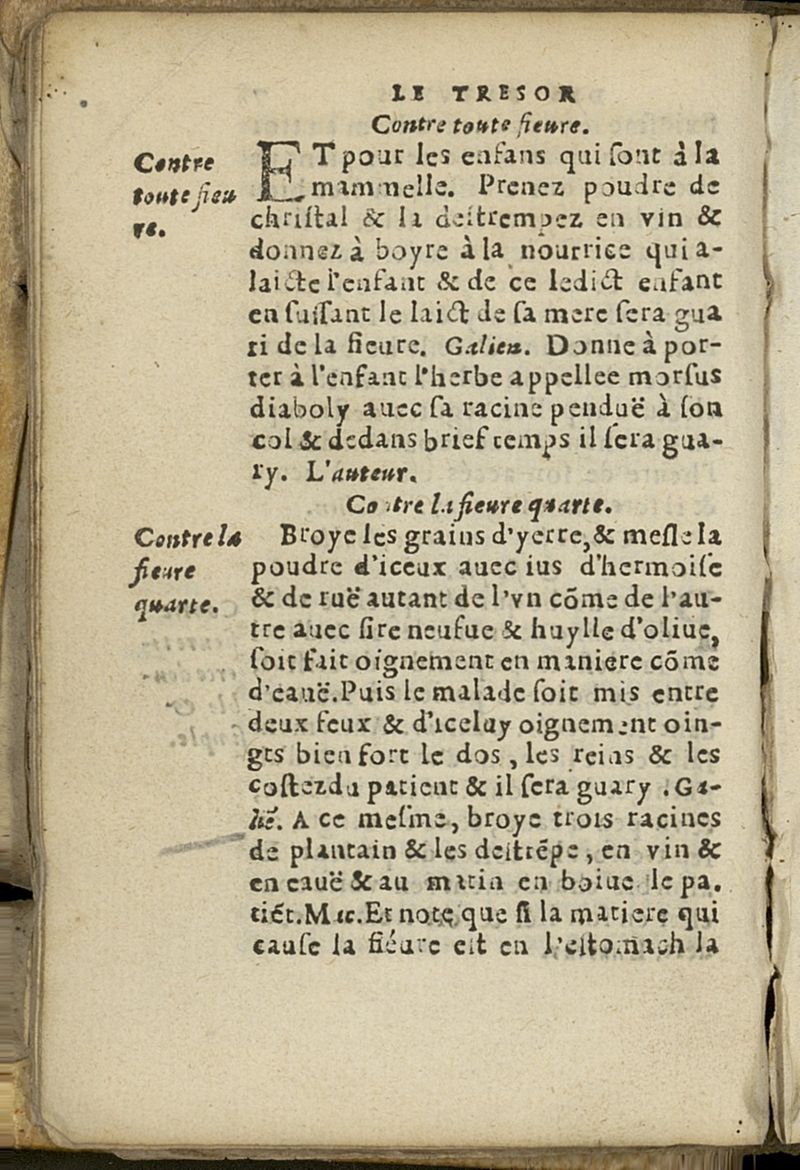 LE TRESOR
Contre toute fieure.
Contre
toute fieu
re.
ET pour les enfans qui ſont à la
mammelle. Prenez poudre de
chriſtal & la deſtrempez en vin &
donnez à boyre à la nourrice qui a-
laicte l'enfant & de ce ledict enfant
en ſuſſant le laict de ſa mere ſera gua
ri de la fieure. Galien. Donne à por-
ter à l'enfant l'herbe appellee morſus
diaboly auec ſa racine penduë à ſon
col & dedans brief temps il ſera gua-
ry. L'auteur.
Contre la fieure quarte.
Contre la
fieure
quarte.
Broye les grains d'yerre, & meſle la
poudre d'iceux auec ius d'hermoiſe
& de ruë autant de l'vn cõme de l'au-
tre auec ſire neufue & huylle d'oliue,
ſoit fait oignement en maniere cõme
d'eauë. Puis le malade ſoit mis entre
deux feux & d'iceluy oignement oin-
gts bien fort le dos, les reins & les
coſtez du patient & il ſera guary. Ga-
liẽ. A ce meſme, broye trois racines
de plantain & les deſtrẽpe, en vin &
en cauë & au matin en boiue le pa.
tiẽt. Mac. Et note que ſi la matiere qui
cauſe la fiéure eſt en l'eſtomach la